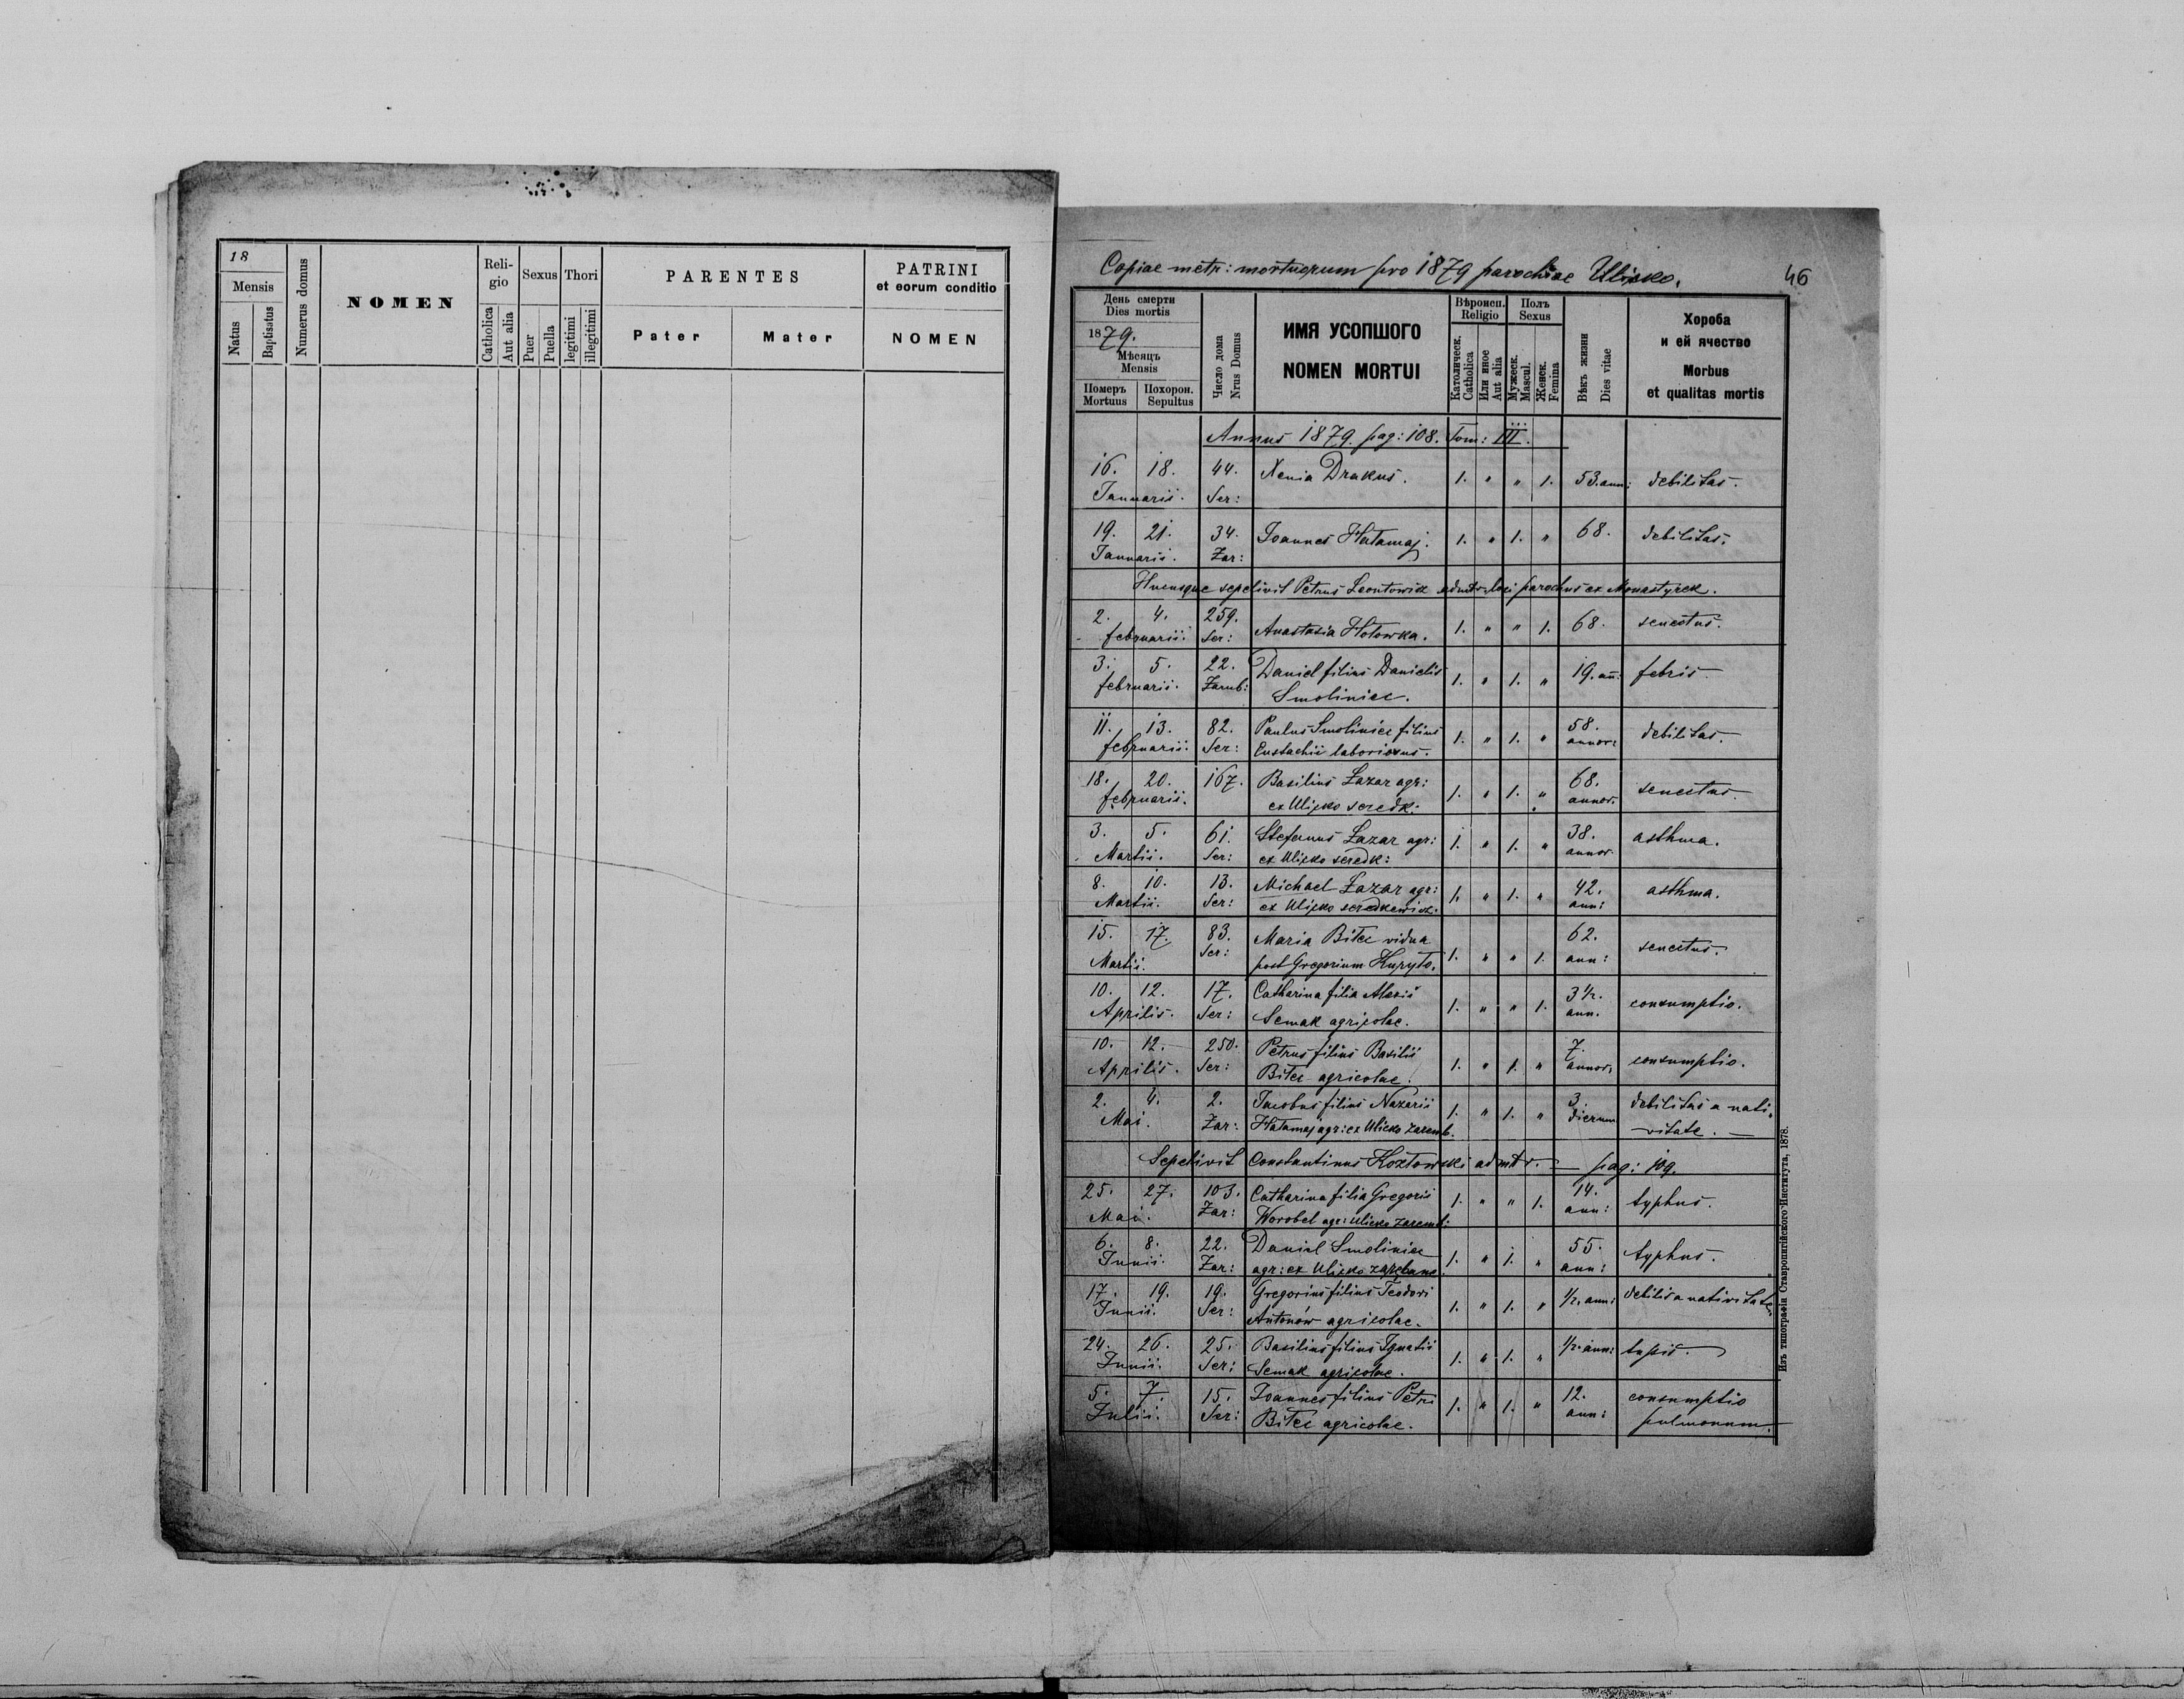 18
Mensis
Natus
Baptisatus
Numerus domus
NOMEN
Reli-
gio
Catholica
Aut alia
Sexus
Puer
Puella
Thori
legitimi
illegitimi
PARENTES
Pater
Mater
PATRINI
et eorum conditio
NOMEN
Copiae metr: mortuorum pro 1879 parochiae Ulicko.
46
День смерти
Dies mortis
1879.
Мѣсяцъ
Mensis
Померъ
Mortuus
Похорон.
Sepultus
Число дома
Nrus Domus
ИМЯ УСОПШОГО
NOMEN MORTUI
Вѣроисп.
Religio
Католическ.
Catholica
Или иное
Aut alia
Полъ
Sexus
Мужеск.
Mascul.
Женск.
Femina
Вѣкъ жизни
Dies vitae
Хороба
и ей ячество
Morbus
et qualitas mortis
Annus 1879. pag: 108. Tom: III.
16. 18. 44. Xenia Drakus. 1. " " 1. 53. ann: debilitas.
Januarii. Ser:
19. 21. 34. Joannes Hałamaj. 1. " 1. " 68. debilitas.
Januarii. Zar:
Hucusque sepelivit Petrus Leontowicz admtr loci parochus ex Monastyrek.
2. 4. 259. Anastasia Hołowka. 1. " " 1. 68. senectus.
februarii. Ser:
3. 5. 22. Daniel filius Danielis 1. " 1. " 19. an: febris
februarii. Zaremb: Smoliniec.
11. 13. 82. Paulus Smoliniec filius 1. " 1. " 58. debilitas.
februarii. Ser: Eustachii laboriosus. annor:
18. 20. 167. Basilius Łazar agr: 1. " 1. " 68. senectus.
februarii. ex Ulicko seredk: annor.
3. 5. 61. Stefanus Łazar agr: 1. " 1. " 38. asthma.
Martii. Ser: ex Ulicko seredk: annor.
8. 10. 13. Michael Łazar agr: 1. " 1. " 42. asthma.
Martii. Ser: ex Ulicko seredkewicz. ann:
15. 17. 83. Maria Biłec vidua 1. " " 1. 62. senectus.
Martii. Ser: post Gregorium Kuryło. ann:
10. 12. 17. Catharina filia Alexii 1. " " 1. 3 1/2. consumptio.
Aprilis. Ser: Semak agricolae. ann.
10. 12. 250. Petrus filius Basilii 1. " 1. " 7. consumptio.
Aprilis. Ser: Biłec agricolae. annor.
2. 4. 2. Jacobus filius Nazarii 1. " 1. " 3. debilitas a nati-
Mai. Zar: Hałamaj agr: ex Ulicko zaremb. dierum vitate.
Sepelivit Constantinus Kozłowski admtr. — pag: 109.
25. 27. 103. Catharina filia Gregorii 1. " " 1. 14. typhus.
Mai. Zar: Worobel agr: Ulicko zaremb: ann:
6. 8. 22. Daniel Smoliniec 1. " 1. " 55. typhus.
Junii. Zar: agr: ex Ulicko ann:
17. 19. 19. Gregorius filius Teodori 1. " 1. " 1/2. ann: debilis a nativitate.
Junii. Ser: Antonów agricolae.
24. 26. 25. Basilius filius Ignatii 1. " 1. " 1/2. ann: tussis.
Junii. Ser: Semak agricolae.
5. 7. 15. Joannes filius Petri 1. " 1. " 12. consumptio
Julii. Ser: Biłec agricolae. ann: pulmonum.
Изъ типографіи Ставропигійского Института, 1878.